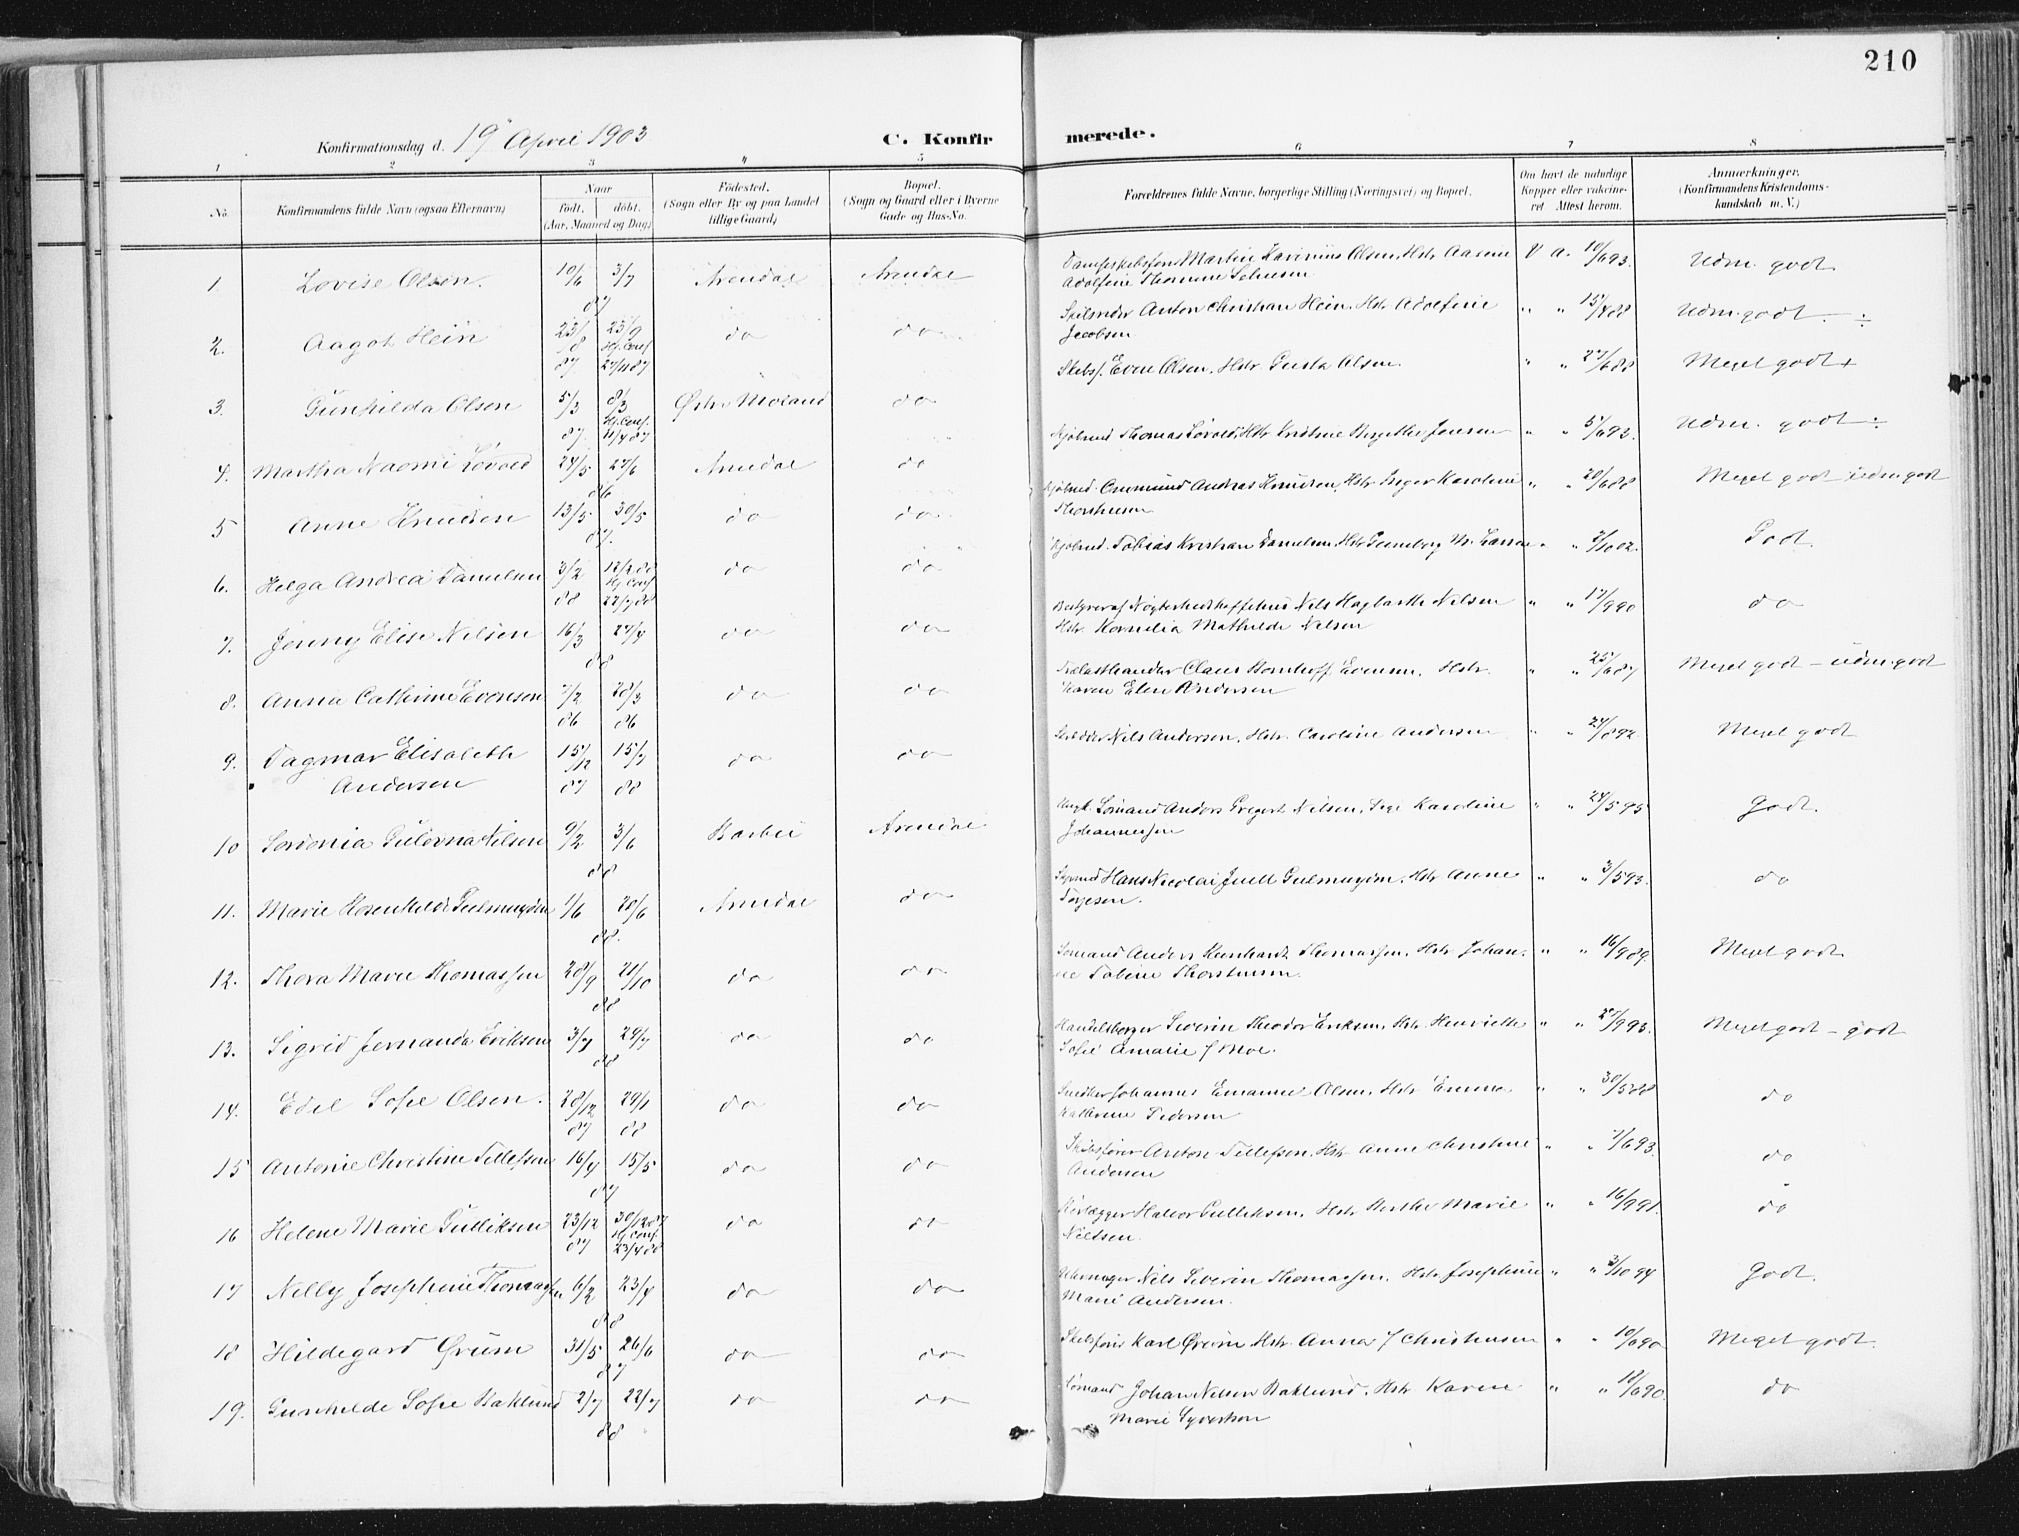 210
Konfirmationsdag d. 19 April 1903
C. Konfir
merede.
1 2 3 4 5 6 7 8
No.
Konfirmandens fulde Navn (ogsaa Efternavn)
Naar
født. døbt.
(Aar, Maaned og Dag)
Fødested.
(Sogn eller By og paa Landet
tillige Gaard)
Bopæl.
(Sogn og Gaard eller i Byerne
Gade og Hus-No.
Forældrenes fulde Navne, borgerlige Stilling (Næringsvei) og Bopæl.
Om havt de naturlige
Kopper eller vaccine-
ret Attest herom.
Anmærkninger.
(Konfirmandens Kristendoms-
kundskab m. V.)
1 Lovise Olsen. 10/6 3/7 Arendal Arendal Martin Olsen, Hstr Aasine V a. 10/6 93. Udm. godt
87 Adolfine
2. Aagot Hein 23/8 25/9 do do Anton Christian Hein, Hstr Adolfine " " 15/4 88 Udm. godt ÷
Hj. Conf. Jacobsen
87 27/11 87
3. Gunhilda Olsen 5/3 8/3 Østre Moland do Skibsf. Even Olsen, Hstr Gusta Olsen. " " 27/6 88 Meget godt +
Hj. Conf.
87. 11/4 87
4. Martha Naomi Løvold 24/5 27/6 Arendal do Thomas Løvold, Hstr Kristine Bergethe Jensen " " 5/6 93. Udm. godt ÷
86
5 Anne Knudsen 13/5 30/5 do do Andreas Knudsen, Hstr Inger Karoline " " 20/6 88 Meget godt - udm godt
87. Thorstensen
6. Helga Andrea Danielsen 3/2 12/2 88 do do Tobias Kristian Danielsen, Hstr Gunneborg M. Larsen " " 7/10 02. Godt.
Hj. Conf.
88 22/7 88
7. Jenny Elise Nilsen 16/3 27/4 do do Nils Hagbarth Nilsen " " 17/9 90 do
88 Hstr. Kornelia Mathilde Nilsen
8. Anna Cathrine Evensen 7/2 28/3 do do Claus Evensen, Hstr. " " 25/6 87 Meget godt - udm. godt
86 86 Karen Elen Andersen
9. Dagmar Elisabeth 15/12 15/7 do do Nils Andersen, Hstr. Caroline Andersen " " 24/8 92. Meget godt
Andersen 87 88
10 Gulovna Nilsen 9/2 3/6 Barbu Arendal Anders Nilsen, Karoline " " 24/5 95 Godt.
88 Johannesen
11. Marie Gulmuyden 1/6 20/6 Arendal do Hans Nicolai Juell Gulmuyden, Hstr Anne " " 3/5 93. do
88. Torjesen.
12. Thora Marie Thomassen 28/9 21/10 do do Sømand Anders Thomassen, Hstr Johan- " " 16/9 89. Meget godt
88 ne Tobine Thorstensen.
13. Sigrid Fernanda Eriksen 3/7 29/7 do do Handelsborger Severin Theodor Eriksen, Hstr. Henriette " " 27/9 93. Meget godt - godt
88 Sofie Amalie f Moe.
14. Edel Sofie Olsen. 28/12 29/1 do do Snedker Johannes Olsen, Hstr Emma " " 30/5 88 do
87 88 Kathrine Pedersen
15 Antonie Christine Tellefsen 16/4 15/5 do do Skibsfører Anton Tellefsen, Hstr Anne Christine " " 7/6 93. do
87 Andersen
16 Helene Marie Gulliksen 23/12 30/12 87 do do Halvor Gulliksen, Hstr Berthe Marie " " 16/9 91. do
Hj. Conf.
87 23/4 88 Nielsen.
17 Nelly Josephine Thomassen 6/2 23/4 do do Uhrmager Nils Severin Thomassen, Hstr Josephine " " 3/10 94 Godt.
88 Marie Andersen.
18 Hildegard Ørum 31/5 26/6 do do Karl Ørum Hstr. Anna f Christensen " " 10/6 90 Meget godt.
87
19. Gunhilde Sofie Baklund 2/7 22/7 do do Sømand Johan Nilsen Baklund, Hstr Karen " " 18/6 90. do
88 Marie Syvertsen